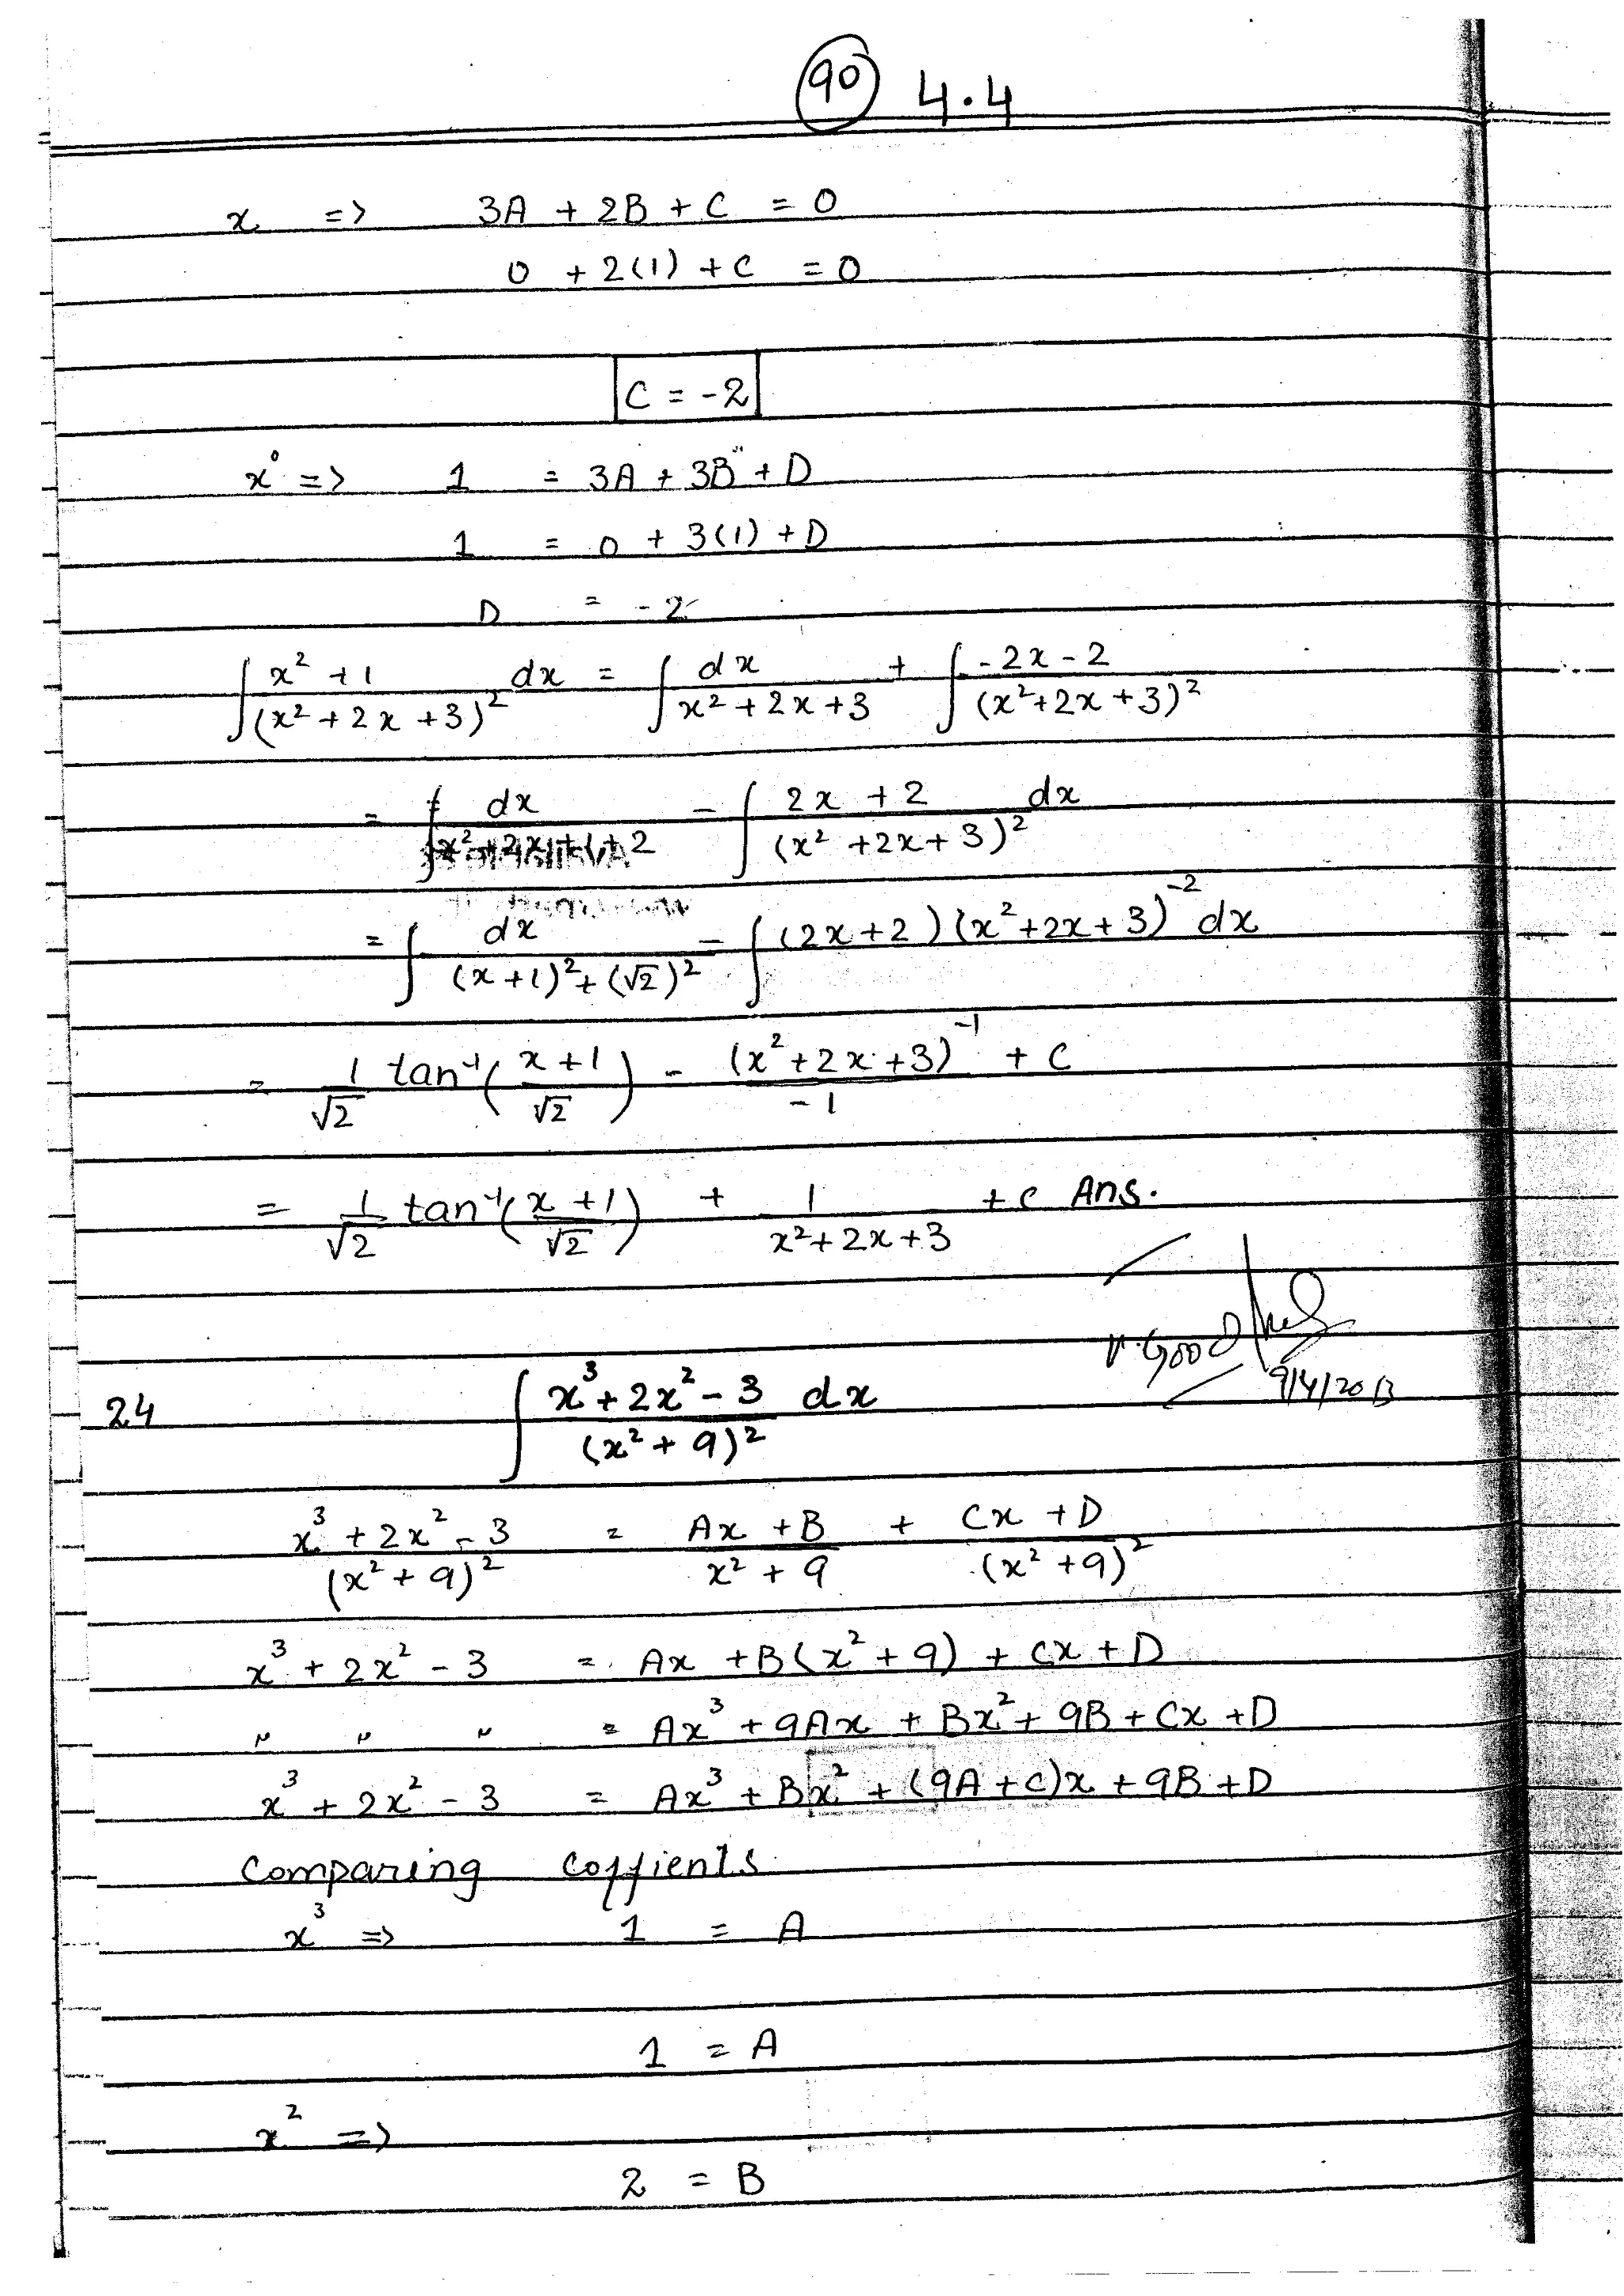 90 4.4
x => 3A + 2B + C = 0
0 + 2(1) + C = 0
C = -2
x⁰ => 1 = 3A + 3B + D
1 = 0 + 3(1) + D
D = -2
∫ x² + 1 / (x² + 2x + 3)² dx = ∫ dx / x² + 2x + 3 + ∫ -2x - 2 / (x² + 2x + 3)²
= ∫ dx / x² + 2x + 1 + 2 - ∫ 2x + 2 / (x² + 2x + 3)² dx
= ∫ dx / (x + 1)² + (√2)² - ∫ (2x + 2) (x² + 2x + 3)⁻² dx
= 1/√2 tan⁻¹ (x + 1 / √2) - (x² + 2x + 3)⁻¹ / -1 + C
= 1/√2 tan⁻¹ (x + 1 / √2) + 1 / x² + 2x + 3 + C Ans.
V. Good
9/4/2013
24 ∫ x³ + 2x² - 3 / (x² + 9)² dx
x³ + 2x² - 3 / (x² + 9)² = Ax + B / x² + 9 + Cx + D / (x² + 9)²
x³ + 2x² - 3 = Ax + B (x² + 9) + Cx + D
" " " = Ax³ + 9Ax + Bx² + 9B + Cx + D
x³ + 2x² - 3 = Ax³ + Bx² + (9A + C)x + 9B + D
Comparing Coffients
x³ => 1 = A
1 = A
x² =>
2 = B